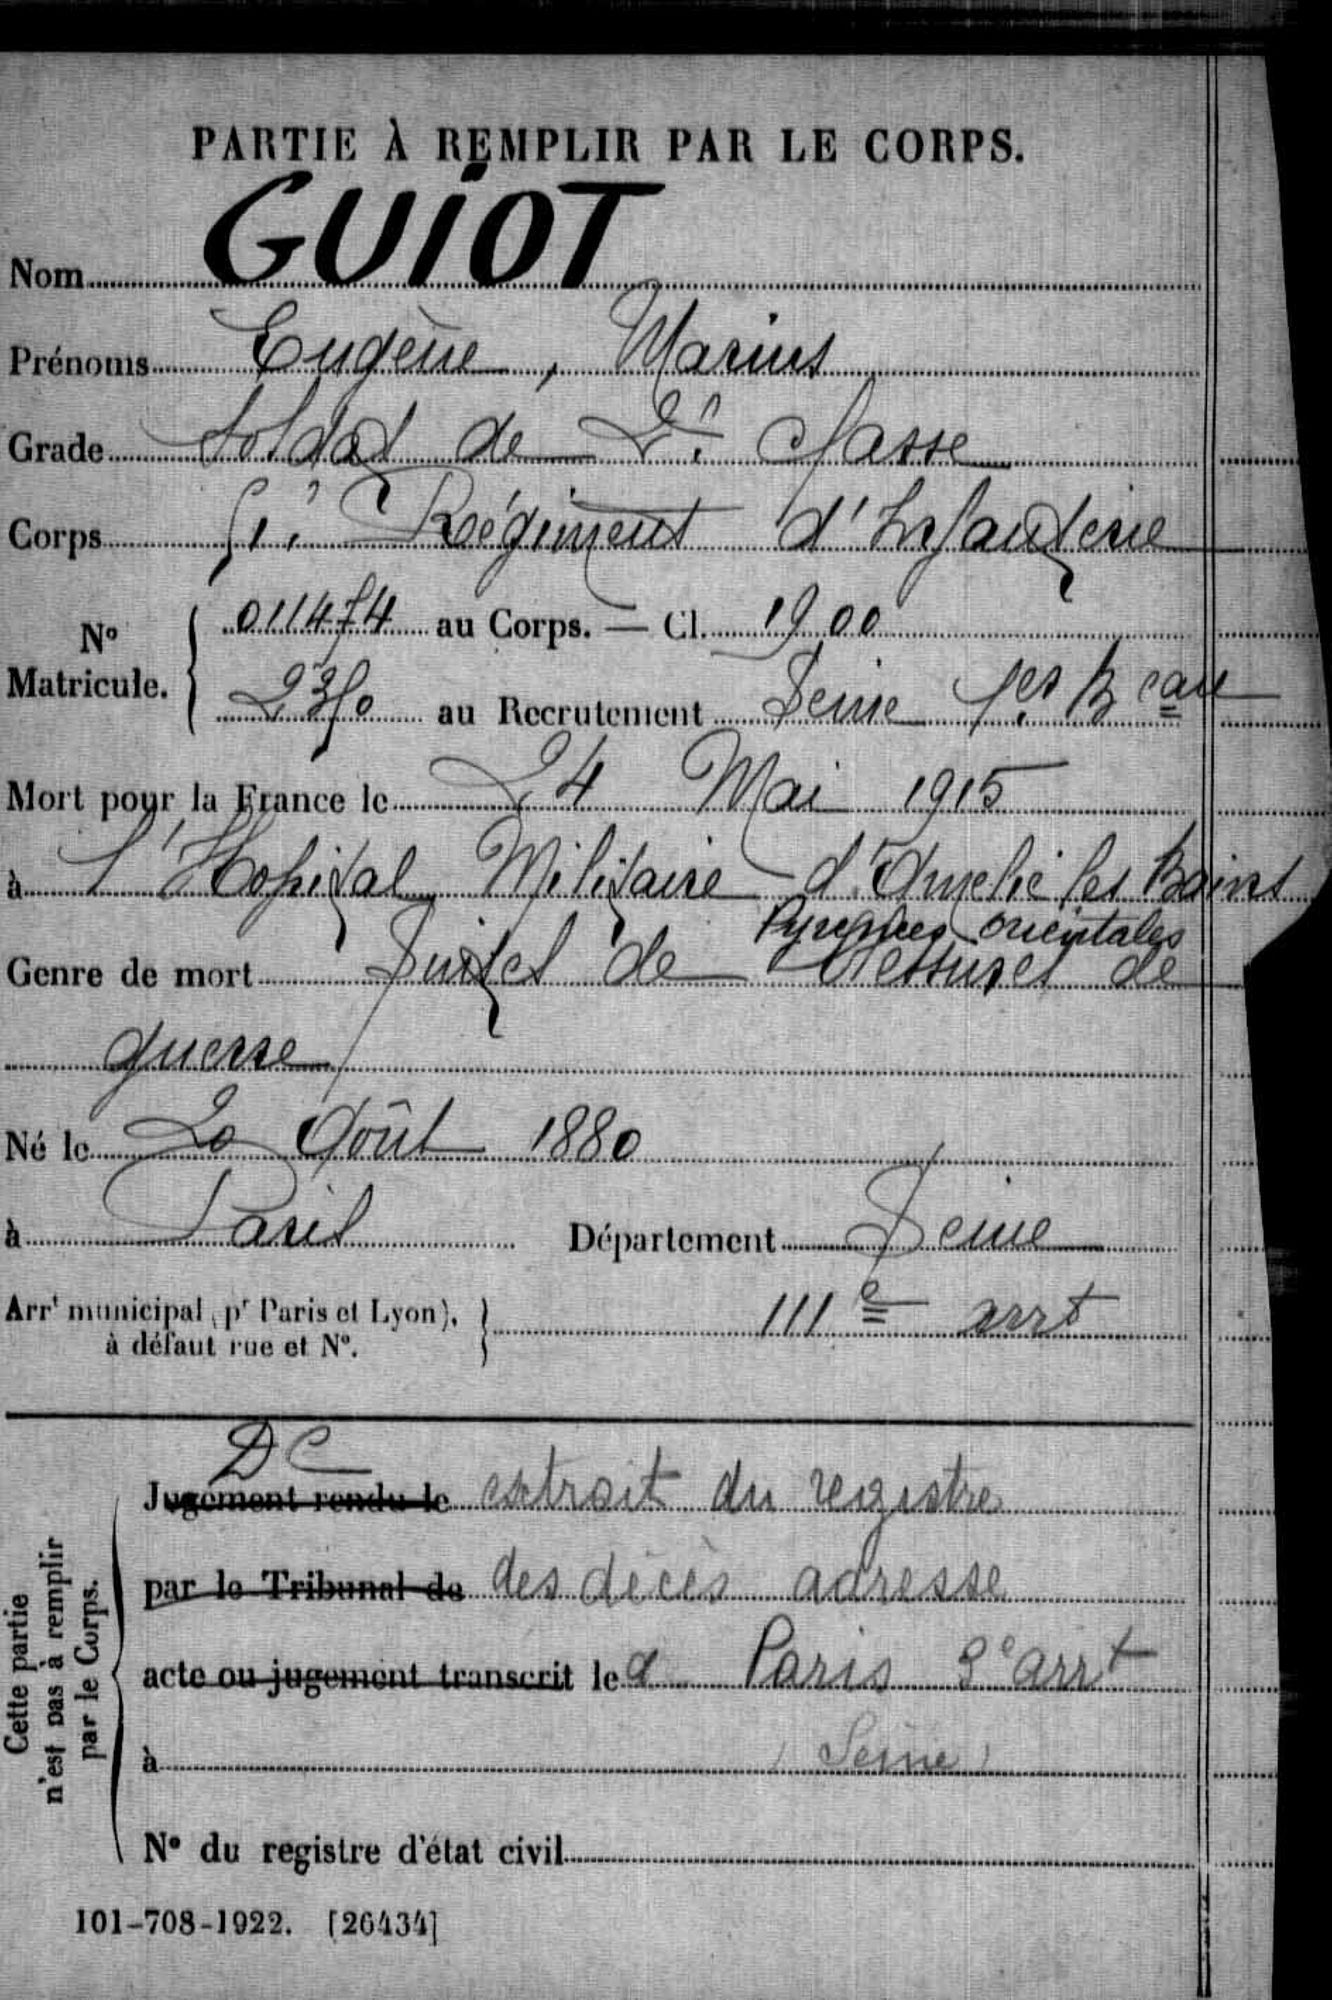 PARTIE À REMPLIR PAR LE CORPS.
Nom GUIOT
Prénoms Eugène, Marius
Grade Soldat de 2e Classe
Corps Régiment d'Infanterie
No Matricule. 011474 au Corps. — Cl. 1900
au Recrutement Seine 1er Beau
Mort pour la France le 24 Mai 1915
à l'Hopital Militaire d'Amelie les Bains
Pyrenées orientales
Genre de mort Suites de blessures de
guerre
Né le 20 Août 1880
à Paris Département Seine
Arrt municipal (pr Paris et Lyon), à défaut rue et No. 111e arrt
DC
Jugement rendu le extrait du registre
par le Tribunal de des décès adresse
acte ou jugement transcrit le d Paris 3e arrt
à (Seine)
No du registre d'état civil
Cette partie n'est pas à remplir par le Corps.
101-708-1922. [26434]